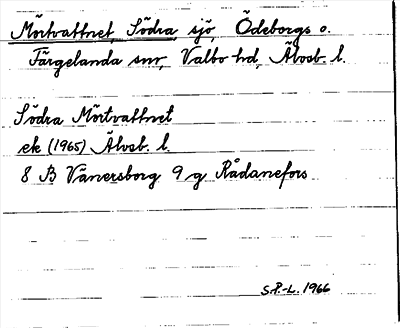 Mörtvattnet Södra, sjö, Ödeborgs o.
Färgelanda snr, Valbo hd, Älvsb. l.
Södra Mörtvattnet
ek (1965) Älvsb. l.
8 B Vänersborg 9 g Rådanefors
S.P.-L. 1966